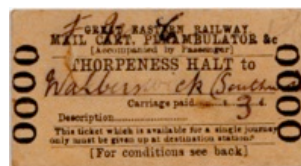 GREAT EASTERN RAILWAY
MAIL CART, PERAMBULATOR &c
[Accompanied by Passenger]
THORPENESS HALT to
Walberswick
Carriage paid 3 d.
Description
This ticket which is available for a single journey
only must be given up at destination station
[For conditions see back]
0000
0000